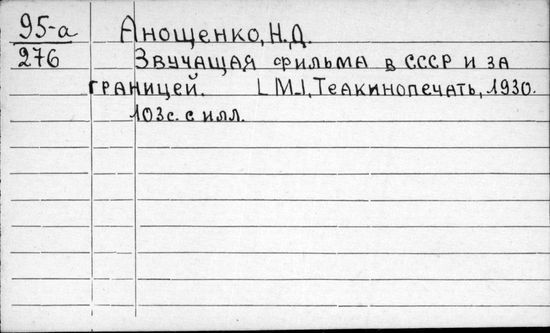 95-а Анощенко, Н.Д.
276 Звучащая фильма в СССР и за
границей. [М.], Теакинопечать, 1930.
103с. с илл.